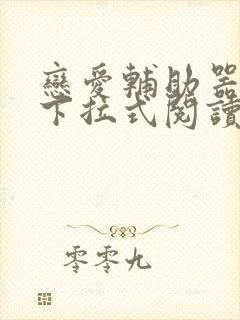 戀愛輔助器
下拉式閱讀
零零九